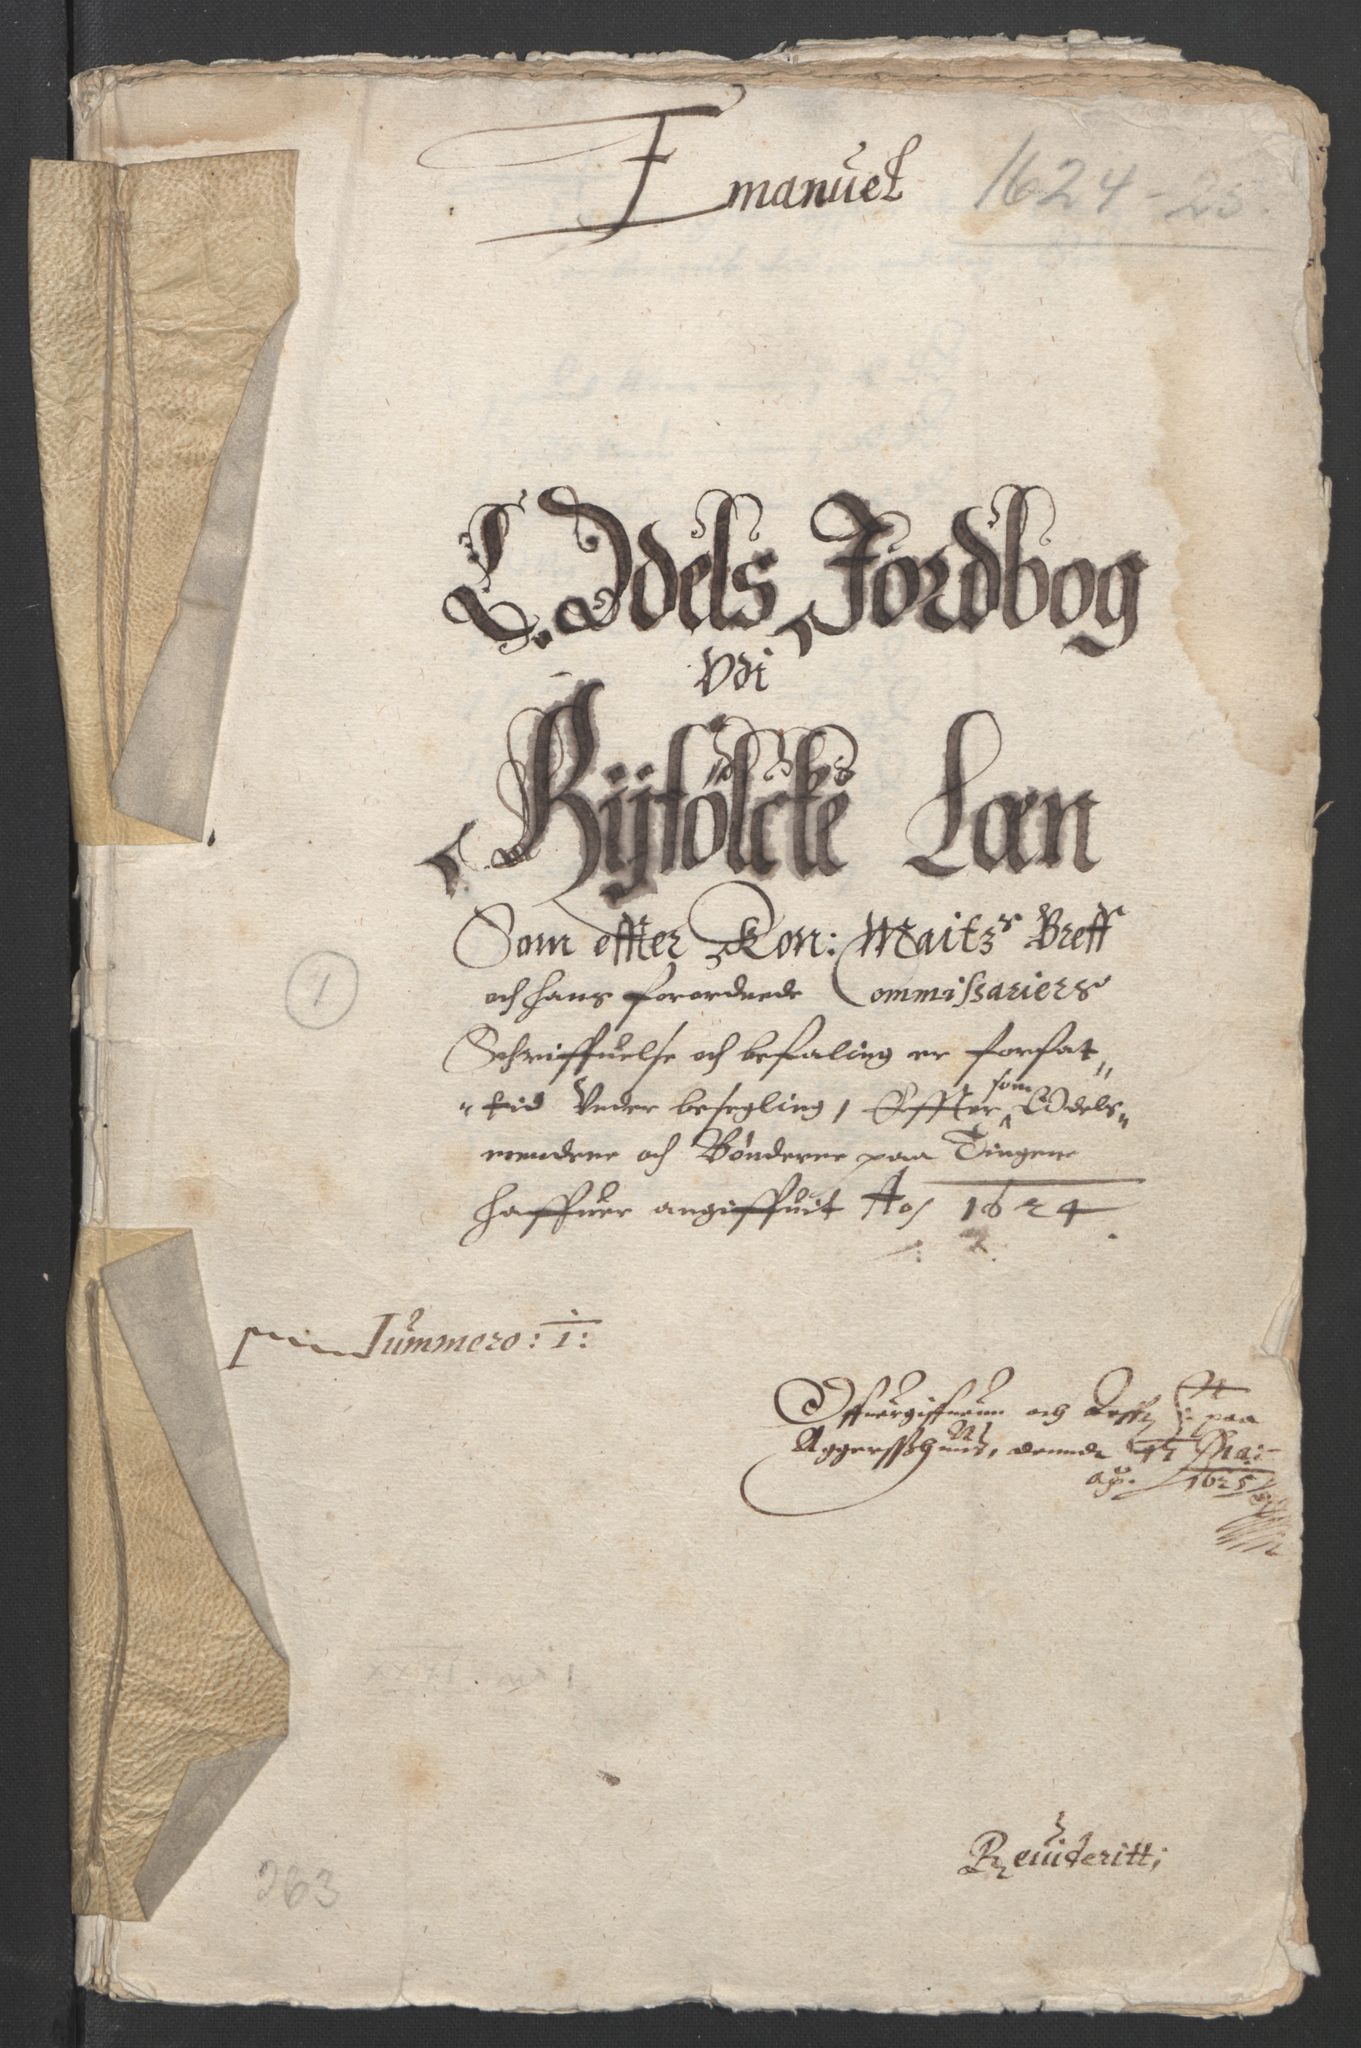 Emanuel 1624-25.
Odels Jordbog
Vdi
Ryfölcke Læn
Som effter Kon: Maitz Breff
och hans forordnede Commissariers
Schriffuelse och befaling er forfat„
„tid Vnder besegling, Effter som Odels„
mendene och Bönderne paa Tingene
haffuer angiffuit Ao/ 1624
1
Nummero: 1:
Offuergiffuenn och Leff: paa
Aggersshuus, dennd 17 Maj
ao. 1625
Reuideritt;
263